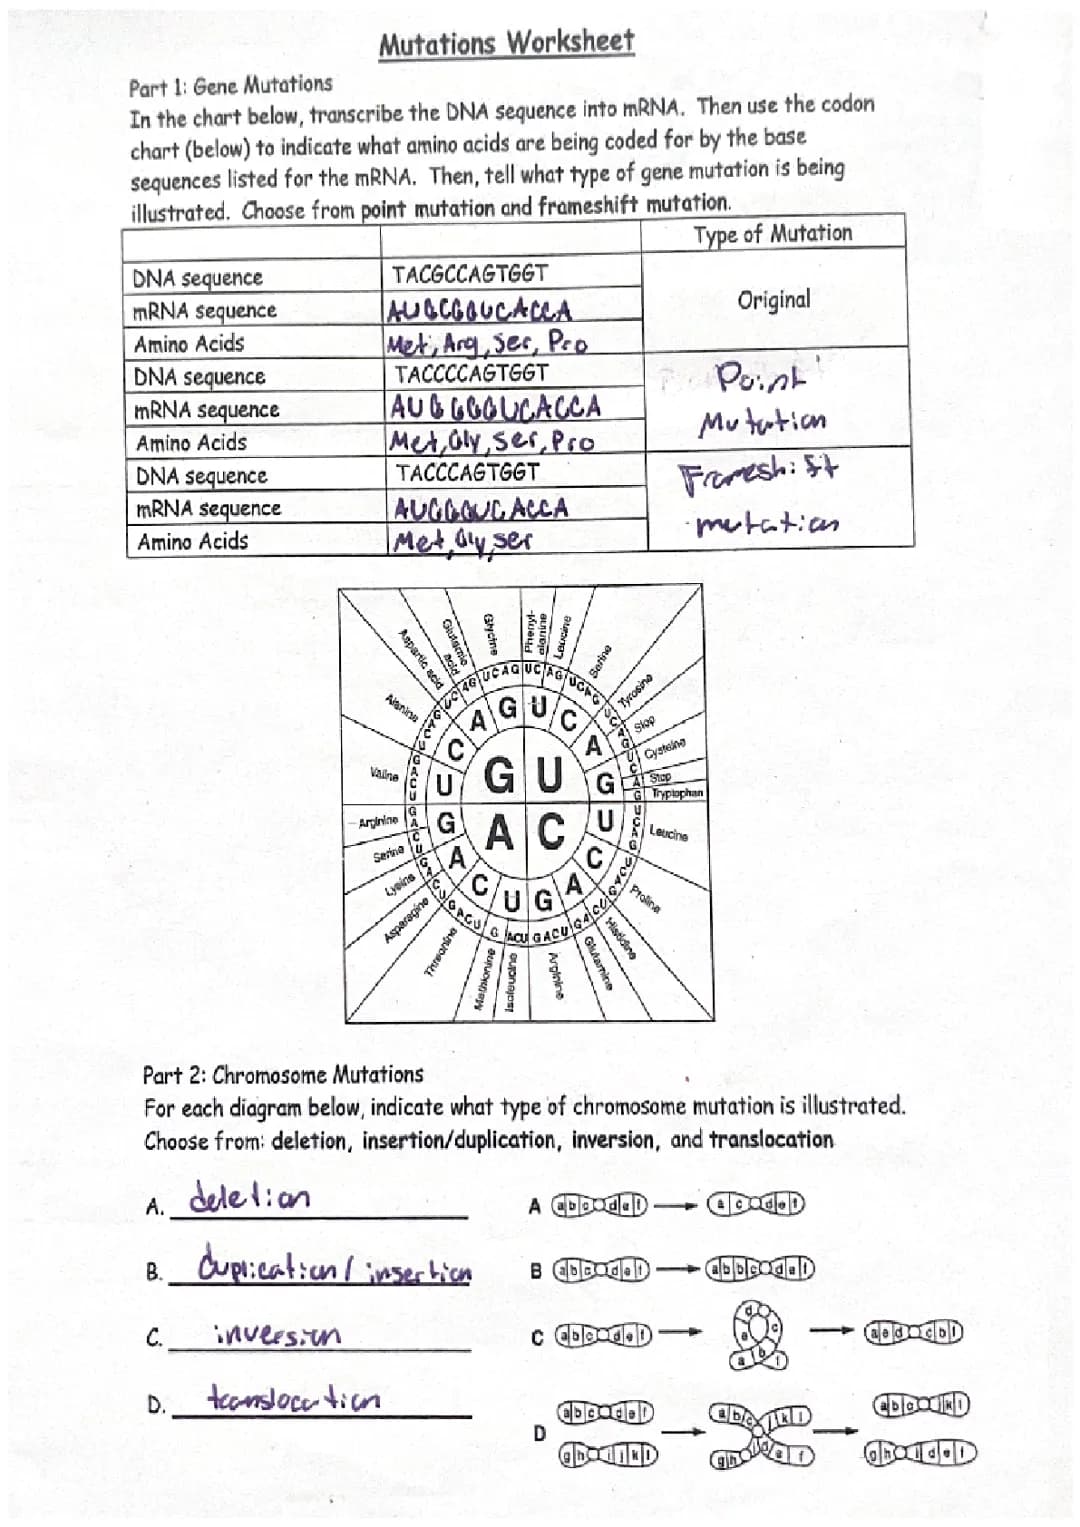 Mutations Worksheet
Part 1: Gene Mutations
In the chart below, transcribe the DNA sequence into mRNA. Then use the codon
chart (below) to indicate what amino acids are being coded for by the base
sequences listed for the mRNA. Then, tell what type of gene mutation is being
illustrated. Choose from point mutation and frameshift mutation.
Type of Mutation
DNA sequence TACGCCAGTGGT
mRNA sequence AUGCGGUCACCA
Original
Amino Acids Met, Arg, Ser, Pro
DNA sequence TACCCCAGTGGT
Point
mRNA sequence AUGGGGUCACCA
Mutation
Amino Acids Met, Gly, Ser, Pro
DNA sequence TACCCAGTGGT
mRNA sequence AUGGGUCACCA
mutation
Amino Acids Met, Gly, ser
Glycine
Phenyl-
alanine
Leucine
Serine
Glutamic
acid
Aspartic acid
Tyrosine
Alanine
Stop
Cysteine
Valine
Stop
Tryptophan
Arginine
Leucine
Serine
Lysine
Proline
Asparagine
Histidine
Threonine
Glutamine
Methionine
Isoleucine
Arginine
G U
A C
Part 2: Chromosome Mutations
For each diagram below, indicate what type of chromosome mutation is illustrated.
Choose from: deletion, insertion/duplication, inversion, and translocation
A. deletion
A a b c d e f a c d e f
B. duplication / insertion
B a b c d e f a b b c d e f
C. inversion
C a b c d e f a e d c b f
D. translocation
D
a b c d e f
a b c j k l
g h i j k l
g h i d e f